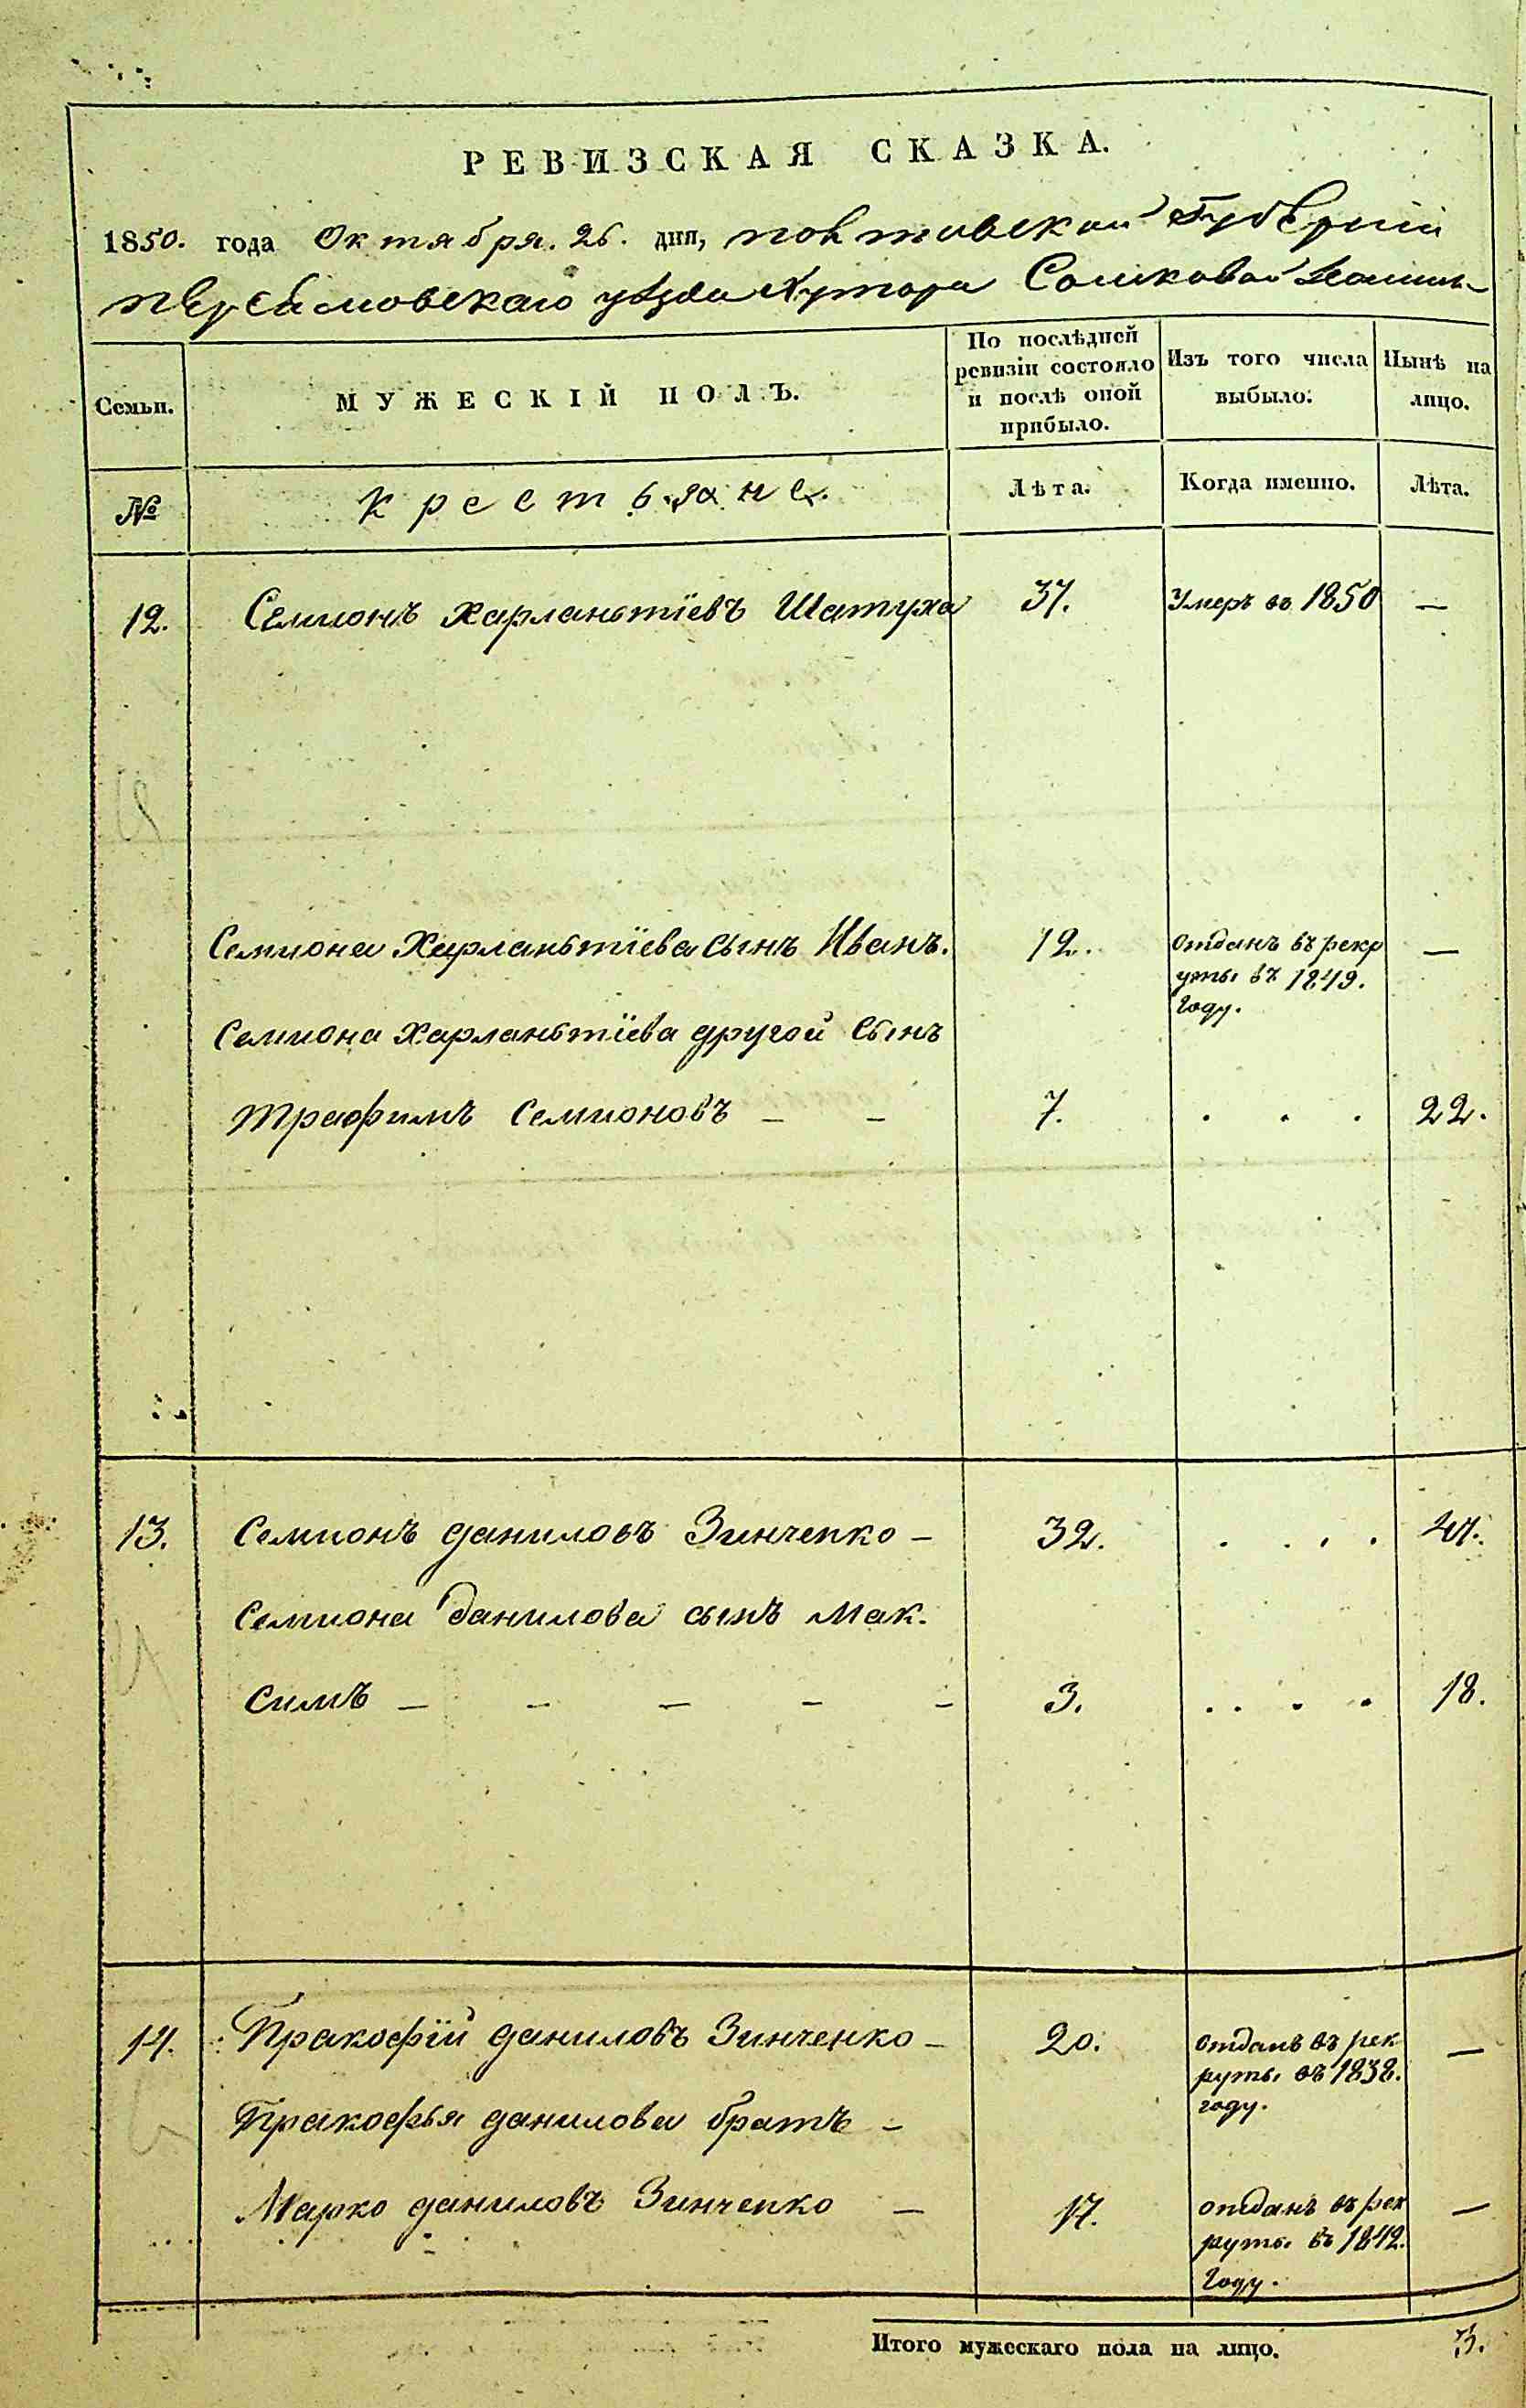 РЕВИЗСКАЯ СКАЗКА.
1850. года Октября. 26. дня, полтавской Губернии
уѣзда Хутора
Семьи.
МУЖЕСКІЙ ПОЛЪ.
По послѣдней ревизіи состояло и послѣ оной прибыло.
Изъ того числа выбыло.
Нынѣ на лицо.
№
Крестьяне.
Лѣта.
Когда именно.
Лѣта.
12. Семионъ Харланьтіевъ Шатуха 37. Умеръ во 1850 —
Семиона Харланьтіева сынъ Иванъ. 12. Отданъ въ рекр —
уты въ 1849.
Году.
Семиона Харланьтіева другой сынъ
Трафимъ Семионовъ — — 7. . . . 22.
13. Семионъ Даниловъ Зинченко — 32. . . . . 47.
Семиона Данилова сынъ Мак.
симъ — — — — — 3. . . . . 18.
14. Пракофій Даниловъ Зинченко — 20. отданъ въ рек —
руты въ 1838.
году.
Пракофья Данилова братъ —
Марко Даниловъ Зинченко — 17. отданъ въ рек —
руты въ 1842.
Году.
Итого мужескаго пола на лицо. 3.